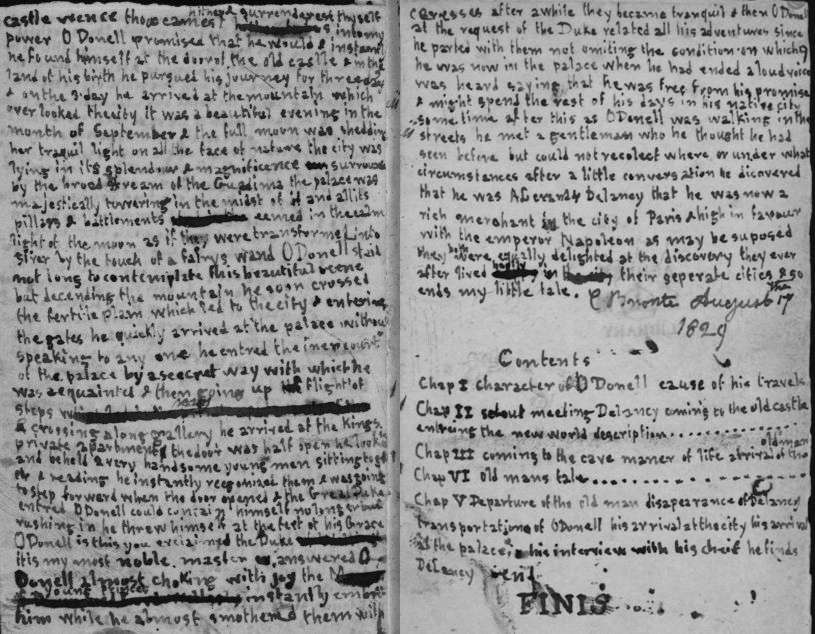 castle whence thou camest hither & surrenderest thyself
into my
power O Donell promised that he would & instantly
he found himself at the door of the old castle & in the
land of his birth he pursued his journey for three days
& on the 3 day he arrived at the mountain which
over looked the city it was a beautiful evening in the
month of September & the full moon was shedding
her traquil light on all the face of nature the city was
lying in its splendour & magnificence surrounded
by the broad stream of the Guadima the palace was
majestically towering in the midst of it and all its
pillars & battlements seemed in the calm
light of the moon as if they were transformed into
silver by the touch of a fairys wand O Donell staid
not long to contemplate this beautiful scene
but decending the mountain he soon crossed
the fertile plain which led to the city & entering
the gates he quickly arrived at the palace without
speaking to any one he entred the iner court
of the palace by a seecret way with which he
was acquainted & then going up a flight of
steps
& crossing a long gallery he arrived at the Kings
private apartment the door was half open he looked
and beheld 2 very handsome young men sitting together
& reading he instantly recgonized them & was going
to step forward when the door opened & the Great Duke
entred O Donell could contain himself no longer but
rushing in he threw himself at the feet of his Grace
O Donell is this you exclaimed the Duke
it is my most noble master answered O
Donell almost choking with joy the
young instantly embraced
him while he almost smothered them with
caresses after a while they became tranquil & then O Donell
at the request of the Duke related all his adventures since
he parted with them not omiting the condition on which
he was now in the palace when he had ended a loud voice
was heard saying that he was free from his promise
& might spend the rest of his days in his native city
some time after this as O Donell was walking in the
streets he met a gentleman who he thought he had
seen before but could not recolect where or under what
circumstances after a little conversation he dicovered
that he was Alexander Delancy that he was now a
rich merchant in the city of Paris & high in favour
with the emperor Napoleon as may be suposed
they both were equally delighted at the discovery they ever
after lived happily in their seperate cities & so
ends my little tale. C Bronte August 17 the
1829
Contents
Chap I character of O Donell cause of his travels
Chap II setout meeting Delancy coming to the old castle
entreing the new world description..........
Chap III coming to the cave maner of life arival of the old man
Chap VI old mans tale..............
Chap V Departure of the old man disapearance of Delancy
transportation of O Donell his arrival at the city his arrival
at the palace, his interview with his cheif he finds
Delancy end
FINIS